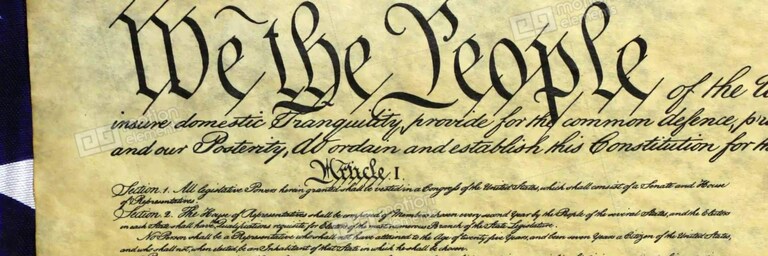 We the People of the U
insure domestic Tranquility, provide for the common defence, pr
and our Posterity, do ordain and establish this Constitution for th
Article I.
Section 1. All legislative Powers herein granted shall be vested in a Congress of the United States, which shall consist of a Senate and House
of Representatives.
Section 2. The House of Representatives shall be composed of Members chosen every second Year by the People of the several States, and the Electors
in each State shall have Qualifications requisite for Electors of the most numerous Branch of the State Legislature.
No Person shall be a Representative who shall not have attained to the Age of twenty five Years, and been seven Years a Citizen of the United States,
and who shall not, when elected, be an Inhabitant of that State in which he shall be chosen.
motion elements